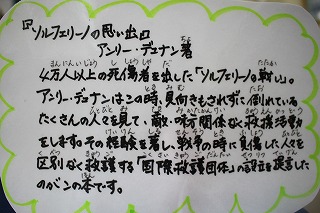 『ソルフェリーノの思い出』
アンリー・デュナン著
4万人以上の死傷者を出した「ソルフェリーノの戦い」。
アンリー・デュナンはこの時、見向きもされずに倒れている
たくさんの人々を見て、敵・味方関係なく救護活動
をします。その経験を著し、戦争の時に負傷した人々を
区別なく救護する「国際救護団体」の設立を提言した
のがこの本です。